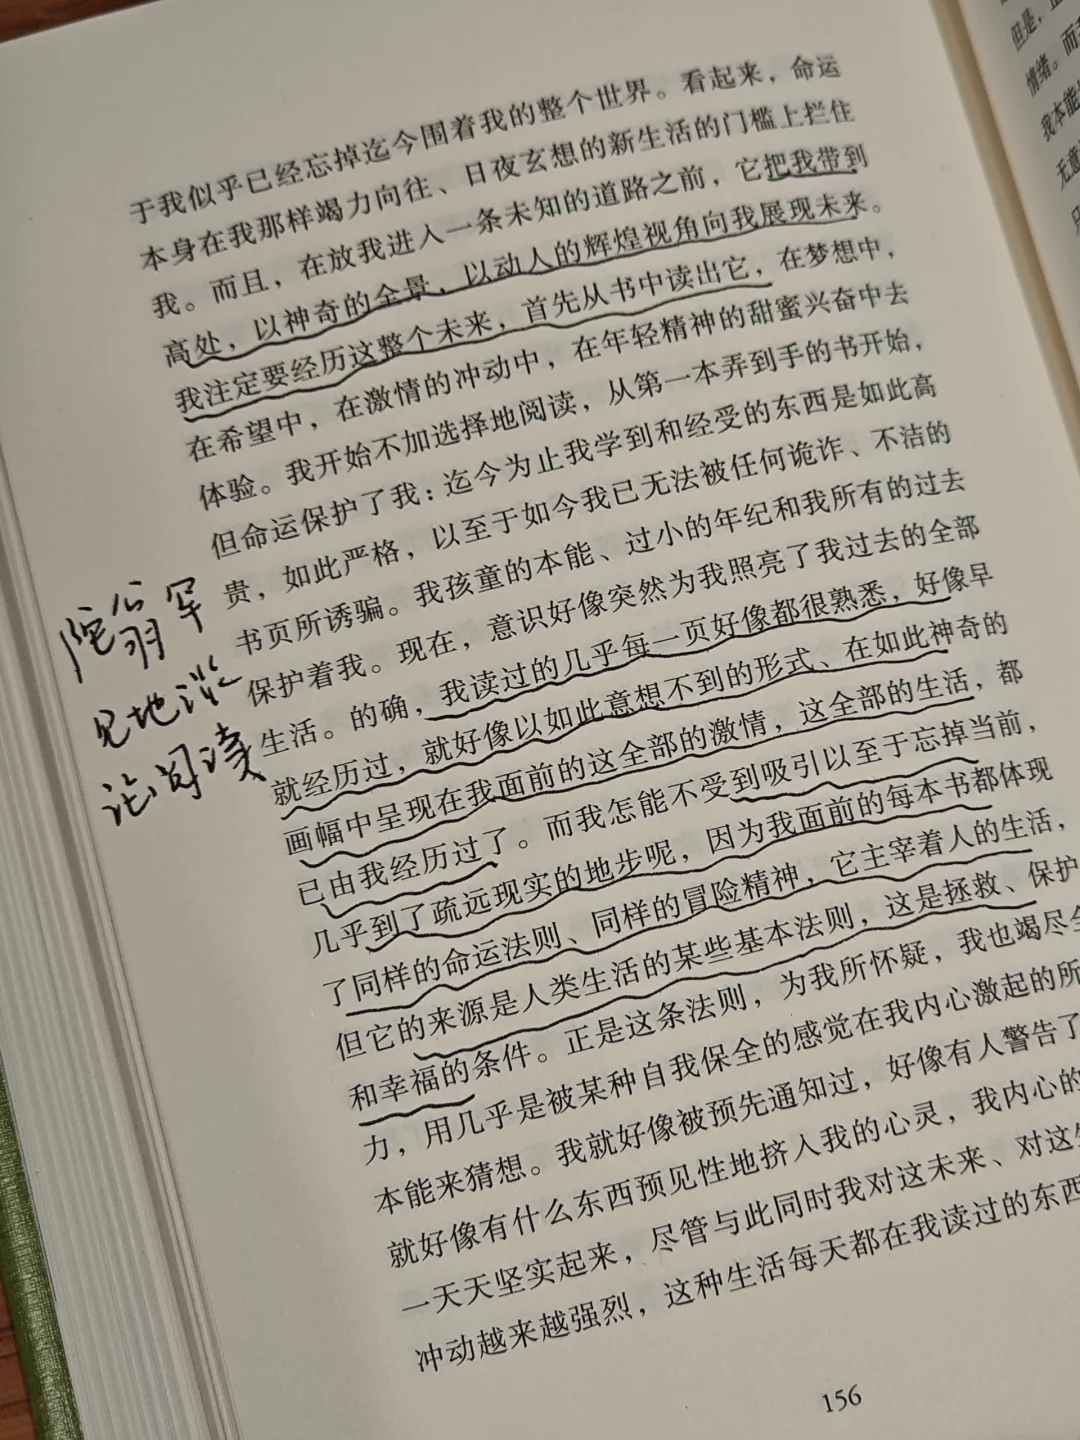 于我似乎已经忘掉迄今围着我的整个世界。看起来，命运
本身在我那样竭力向往、日夜玄想的新生活的门槛上拦住
我。而且，在放我进入一条未知的道路之前，它把我带到
高处，以神奇的全景，以动人的辉煌视角向我展现未来。
我注定要经历这整个未来，首先从书中读出它，在梦想中，
在希望中，在激情的冲动中，在年轻精神的甜蜜兴奋中去
体验。我开始不加选择地阅读，从第一本弄到手的书开始，
但命运保护了我：迄今为止我学到和经受的东西是如此高
贵，如此严格，以至于如今我已无法被任何诡诈、不洁的
书页所诱骗。我孩童的本能、过小的年纪和我所有的过去
保护着我。现在，意识好像突然为我照亮了我过去的全部
生活。的确，我读过的几乎每一页好像都很熟悉，好像早
就经历过，就好像以如此意想不到的形式、在如此神奇的
画幅中呈现在我面前的这全部的激情，这全部的生活，都
已由我经历过了。而我怎能不受到吸引以至于忘掉当前，
几乎到了疏远现实的地步呢，因为我面前的每本书都体现
了同样的命运法则、同样的冒险精神，它主宰着人的生活，
但它的来源是人类生活的某些基本法则，这是拯救、保护
和幸福的条件。正是这条法则，为我所怀疑，我也竭尽全
力，用几乎是被某种自我保全的感觉在我内心激起的所
本能来猜想。我就好像被预先通知过，好像有人警告了
就好像有什么东西预见性地挤入我的心灵，我内心的
一天天坚实起来，尽管与此同时我对这未来、对这生
冲动越来越强烈，这种生活每天都在我读过的东西
156
陀翁罕
见地谈
论阅读
但是，
情绪。而
我本能
无意